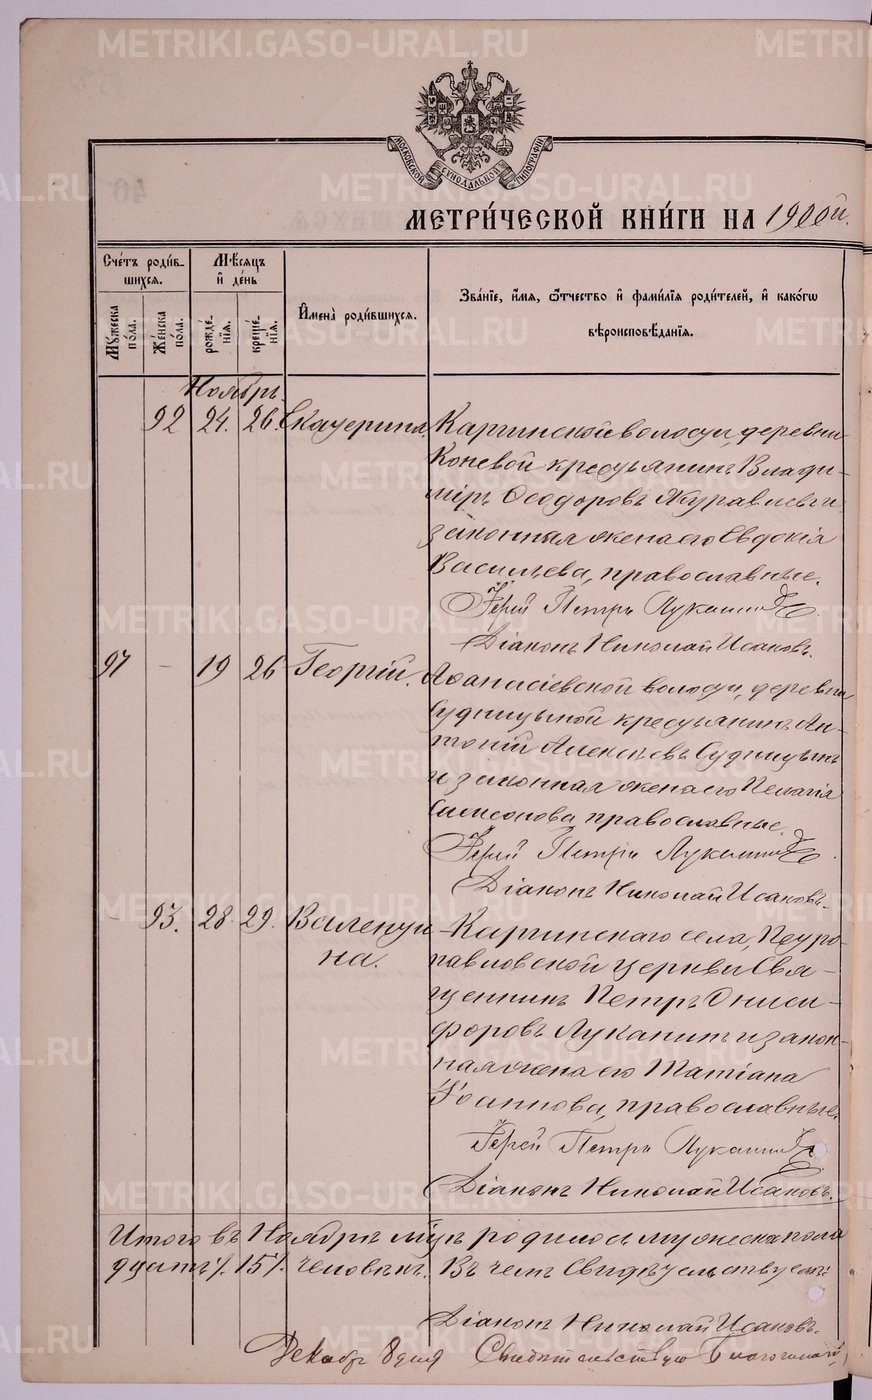 МОСКОВСКОЙ СѴНОДАЛЬНОЙ ТИПОГРАФІИ
МЕТРИ́ЧЕСКОЙ КНИ́ГИ НА 1900й.
Сче́тъ роди́в-
шихся.
Мѣ́сяцъ
и҆ де́нь
И҆мена̀ роди́вшихся.
Зва́нїе, и҆́мя, ѻ҆́тчество и҆ фами́лїя роди́телей, и҆ како́гѡ
вѣроисповѣ́данїя.
Мꙋ́жеска
по́ла.
Же́нска
по́ла.
рожде́-
нїя.
креще́-
нїя.
Ноябрь.
92 24. 26. Екатерина. Каргинской волости, деревни
Коневой крестьянинъ Влади-
міръ Ѳеодоровъ Журавлевъ и
законная жена его Евдокія
Васильева, православные.
Іерей Петръ Луканинъ
Діаконъ Николай Исаковъ.
97 – 19 26 Георгій. Аѳанасіевской волости, деревни
Судницыной крестьянинъ Ан-
тоній Алексѣевъ Судницынъ
и законная жена его Пелагія
Симеонова, православные.
Іерей Петръ Луканинъ
Діаконъ Николай Исаковъ.
– 93. 28. 29. Валенти- Каргинскаго села, Петро-
на. павловской церкви Свя-
щенникъ Петръ Ониси-
форовъ Луканинъ и закон-
ная жена его Татіана
Іоаннова, православные.
Іерей Петръ Луканинъ
Діаконъ Николай Исаковъ.
Итого въ Ноябрѣ м҃цѣ родилось мужеска пола
15 человѣкъ. Въ чемъ свидѣтельствуемъ:
Діаконъ Николай Исаковъ.
Декабр 8 дня Свидѣтельствую Благочинный